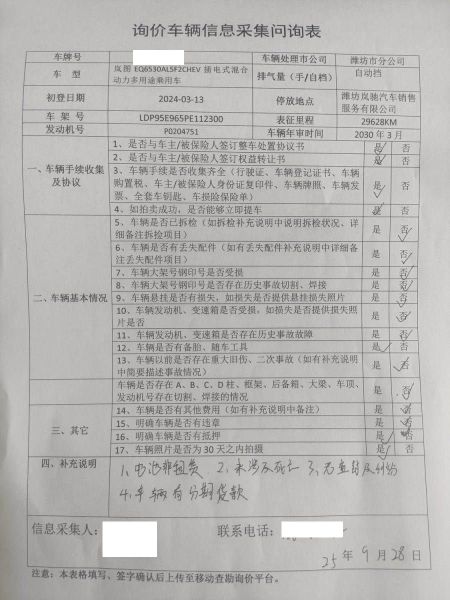 询价车辆信息采集问询表
车牌号 车辆处理市公司 潍坊市分公司
车 型 岚图 EQ6530AL5F2CHEV 插电式混合动力多用途乘用车 排气量（手/自档） 自动挡
初登日期 2024-03-13 停放地点 潍坊岚驰汽车销售服务有限公司
车 架 号 LDP95E965PE112300 表征里程 29628KM
发动机号 P0204751 车辆年审时间 2030 年 3 月
一、车辆手续收集及协议
1、是否与车主/被保险人签订整车处置协议书 是 否
2、是否与车主/被保险人签订权益转让书 是 否
3、车辆手续是否收集齐全（行驶证、车辆登记证书、车辆购置税、车主/被保险人身份证复印件、车辆牌照、车辆发票、全套车钥匙、车损险保险单） 是 否
4、如拍卖成功，是否能够立即提车 是 否
二、车辆基本情况
5、车辆是否已拆检（如拆检补充说明中说明拆检状况、详细备注拆检项目） 是 否
6、车辆是否有丢失配件（如有丢失配件补充说明中详细备注丢失配件项目） 是 否
7、车辆大架号钢印号是否受损 是 否
8、车辆大架号钢印号是否存在历史事故切割、焊接 是 否
9、车辆悬挂是否有损失，如损失是否提供悬挂损失照片 是 否
10、车辆发动机、变速箱是否受损，如损失是否提供损失照片是否 是 否
11、车辆发动机、变速箱是否存在历史事故故障 是 否
12、车辆是否有备胎、随车工具 是 否
13、车辆以前是否存在重大旧伤、二次事故（如有补充说明中简要描述事故情况） 是 否
车辆是否存在 A、B、C、D 柱、框架、后备箱、大梁、车顶、发动机号存在切割、焊接的情况 是 否
三、其它
14、车辆是否有其他费用（如有补充说明中备注） 是 否
15、明确车辆是否有违章 是 否
16、明确车辆是否有抵押 是 否
17、车辆照片是否为 30 天之内拍摄 是 否
四、补充说明
1、电池非租赁 2、未涉及死亡 3、无查封及纠纷
4、车辆有分期贷款
信息采集人： 联系电话：
25 年 9 月 28 日
注意：本表格填写、签字确认后上传至移动查勘询价平台。